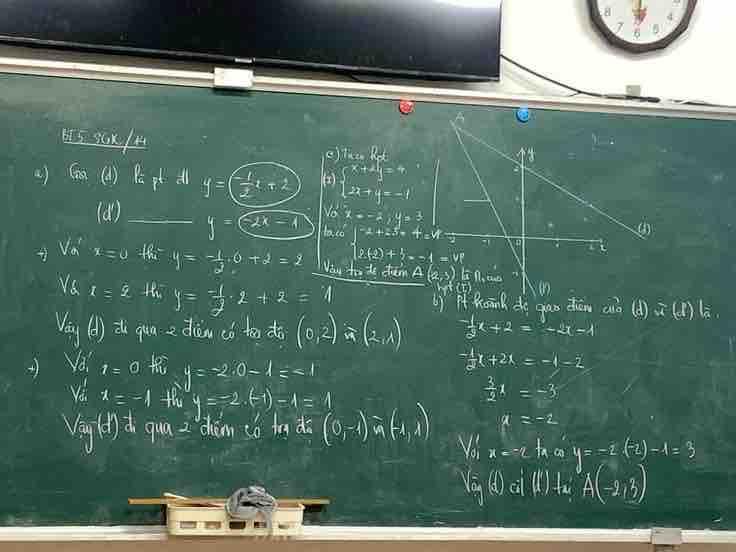 BT5 SGK/14
a) Gọi (d) là pt đt y = -1/2x + 2
(d') ______ y = -2x - 1
+) Với x = 0 thì y = -1/2.0 + 2 = 2
Với x = 2 thì y = -1/2.2 + 2 = 1
Vậy (d) đi qua 2 điểm có tọa độ (0,2) và (2,1)
+) Với x = 0 thì y = -2.0 - 1 = -1
Với x = -1 thì y = -2.(-1) - 1 = 1
Vậy (d') đi qua 2 điểm có tọa độ (0,-1) và (-1,1)
c) Ta có hpt
(I) { x + 2y = 4
2x + y = -1
Với x = -2; y = 3
ta có { -2 + 2.3 = 4 = VP
2.(-2) + 3 = -1 = VP
Vậy tọa độ điểm A (-2,3) là n₀ của
hpt (I)
A
y
2
(d)
-2 -1 0 2 x
-1
(d')
b) Pt hoành độ giao điểm của (d) và (d') là
-1/2x + 2 = -2x - 1
-1/2x + 2x = -1 - 2
3/2x = -3
x = -2
Với x = -2 ta có y = -2.(-2) - 1 = 3
Vậy (d) cắt (d') tại A(-2,3)
8 7 6 5 4